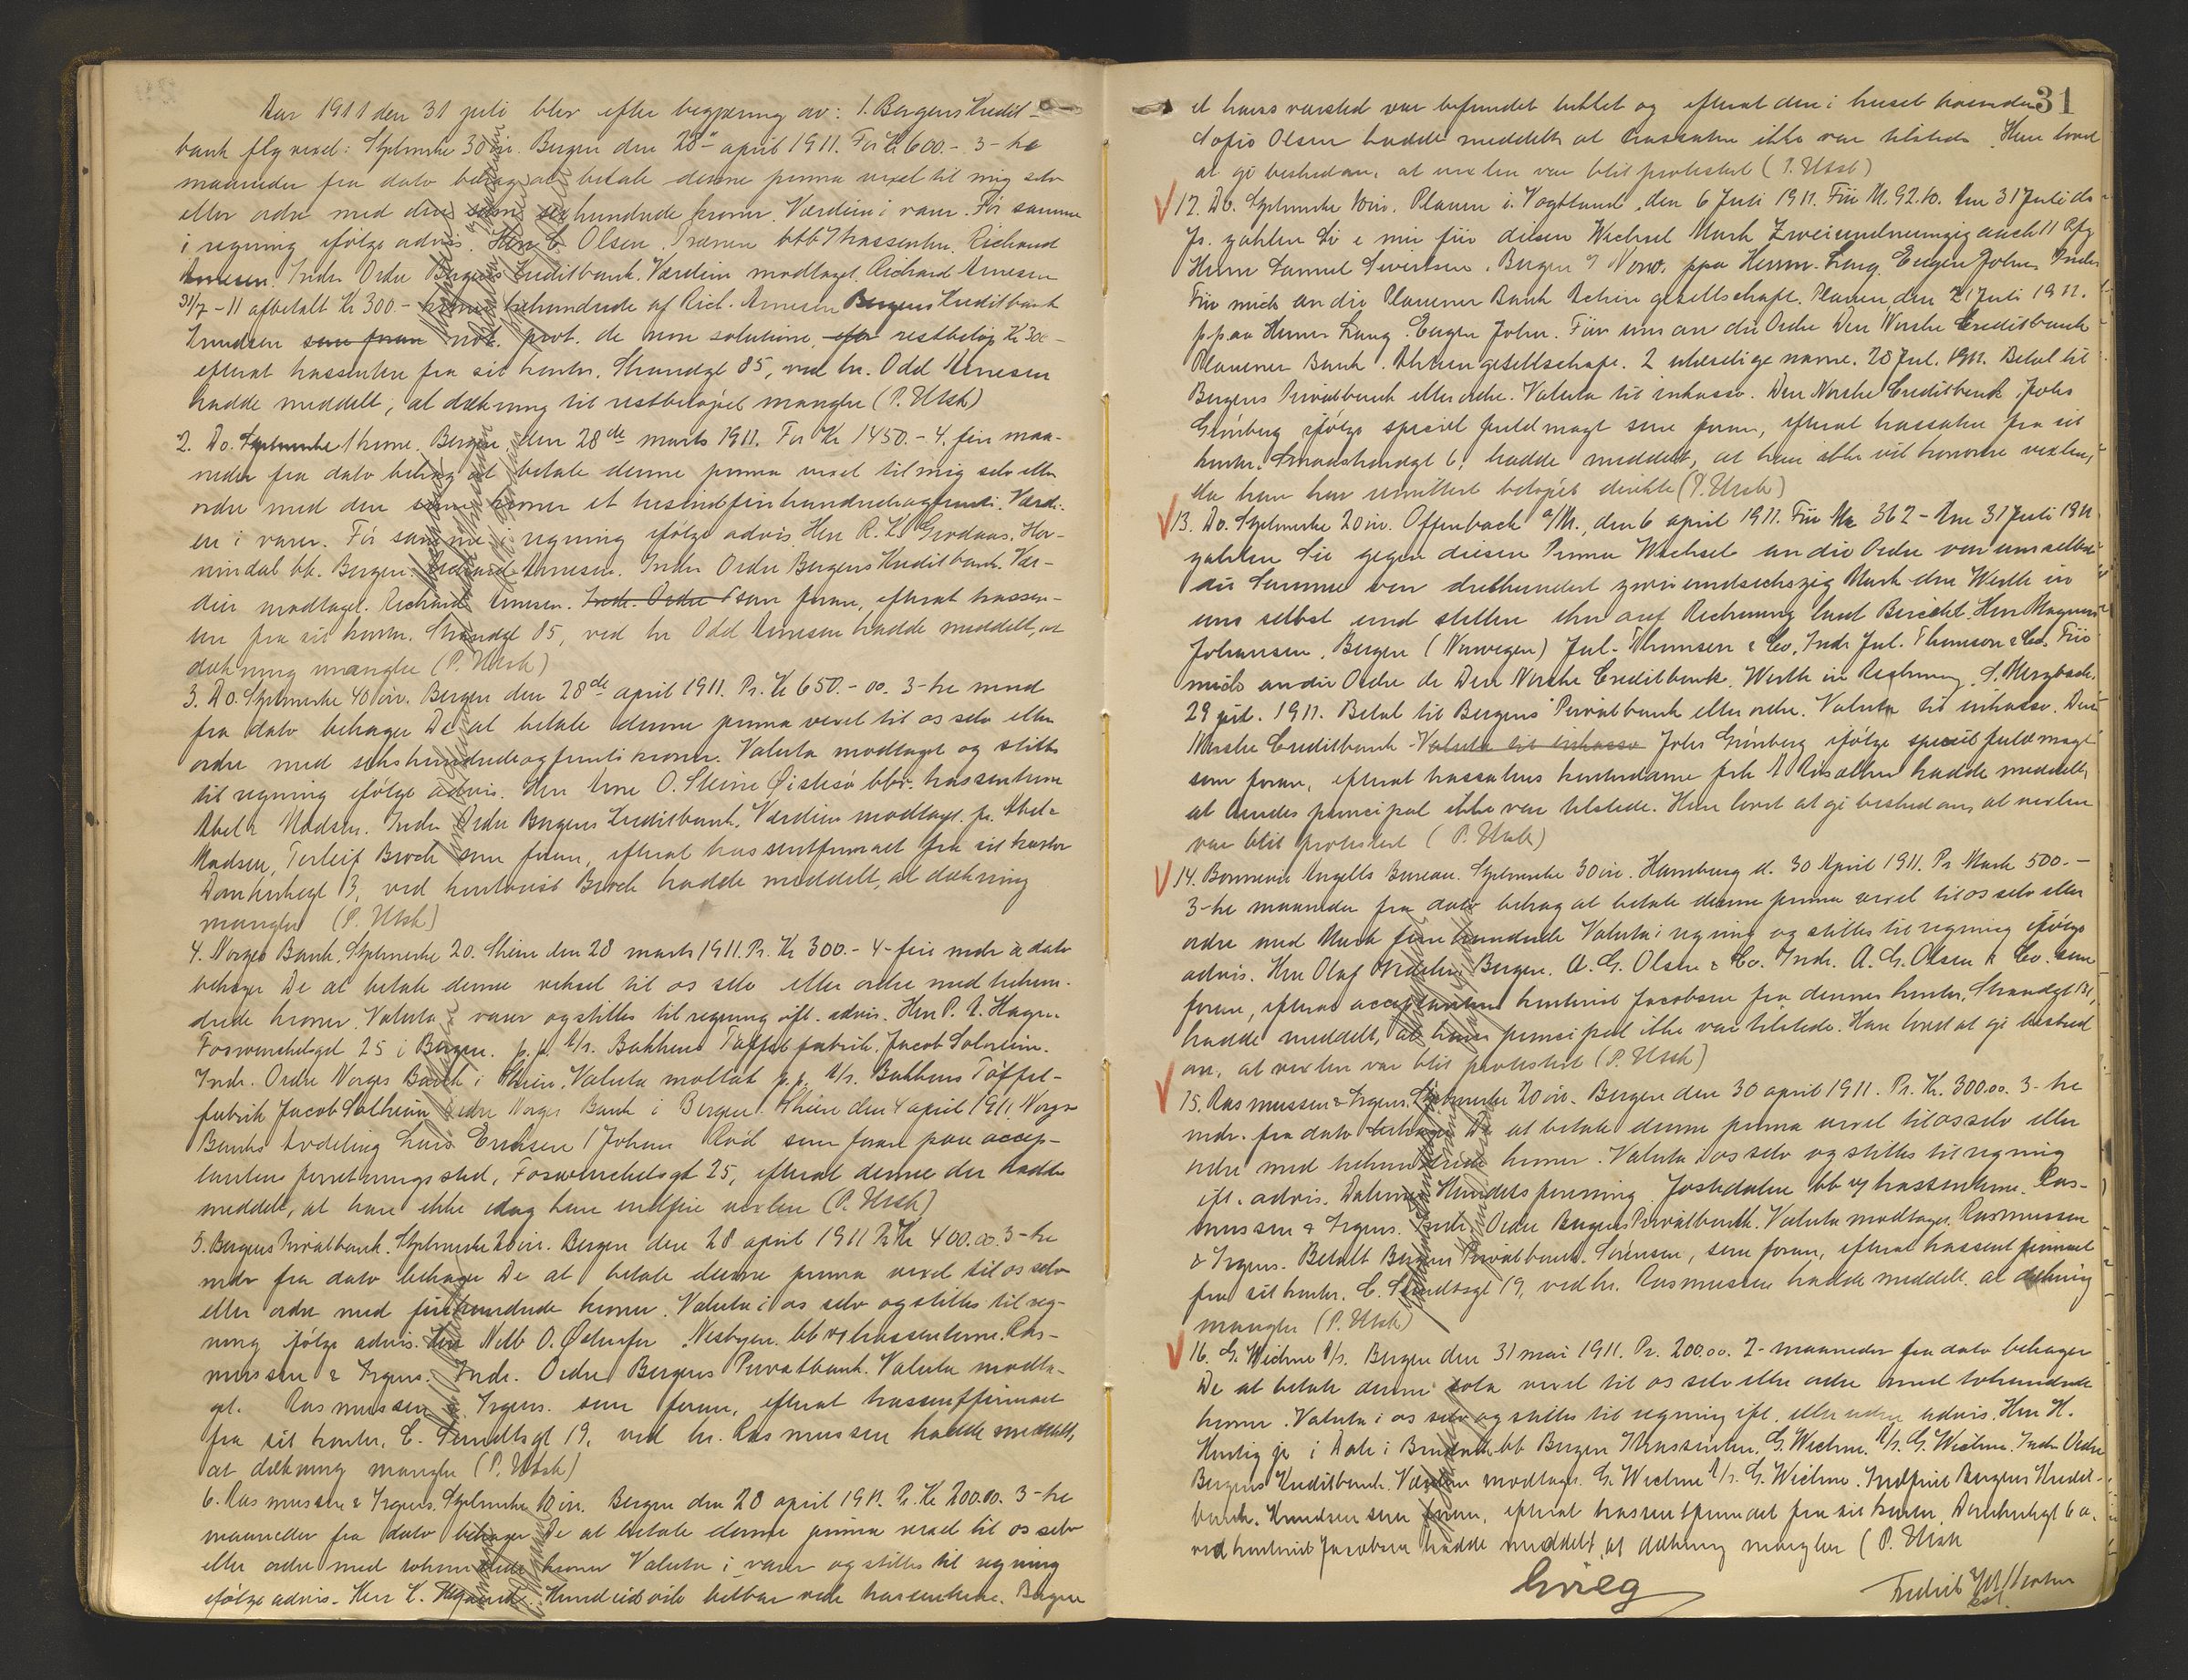 Aar 1911 den 31 juli blev efter begjæring av: 1. Bergens Kredit-
bank flg vexel: Stplmerke 30 øre. Bergen den 28de april 1911. For Kr 600.- 3- tre
maaneder fra dato behag at betale denne prima vexel til mig selv
eller ordre med den sum sexhundrede kroner. Værdien i varer. För samme
i regning ifølge advis. Herr C Olsen. Trænen bbb. Trassenten. Richard
Arnesen. Indr. Ordre Bergens Kreditbank. Værdien modtaget Richard Arnesen
31/7-11 afbetalt Kr 300- kroner trehundrede af Rich. Arnesen Bergens Kreditbank
Knudsen som foran not. prot. de non solutione, efter restbeløp Kr 300-
efterat trassenten fra sit kontor, Strandgt 85, ved hr. Odd Arnesen
hadde meddelt, at dækning til restbeløpet mangler (P. Utsk)
2. Do. Stplmerke 1 krone. Bergen den 28de marts 1911. For Kr 1450.- 4. fire maa-
neder fra dato behag at betale denne prima vexel til mig selv eller
ordre med den sum kroner et tusindfirehundredeogfemti. Værdi-
en i varer. För samme i regning ifølge advis Herr R. L. Grodaas, Hor-
nindal bb. Bergen. Richard Arnesen. Indr. Ordre Bergens Kreditbank. Vær-
dien modtaget. Richard Arnesen. Indr. Ordre som foran, efterat trassen-
ten fra sit kontor, Strandgt 85, ved hr Odd Arnesen hadde meddelt, at
dækning mangler (P. Utsk)
3. Do. Stplmerke 40 øre. Bergen den 28de april 1911. Pr. Kr 650.-00. 3- tre mnd
fra dato behager De at betale denne prima vexel til os selv eller
ordre med sekshundredeogfemti kroner. Valuta modtaget og stilles
til regning ifølge advis. Herr Arne O. Steine Øistesö bbv. trassenterne
Abel & Madsen. Indr Ordre Bergens Kreditbank. Værdien modtaget. pr. Abel &
Madsen, Terleif Broch som foran, efterat trassentfirmaet fra sit kontor
Domkirkegt 3, ved kontorist Broch hadde meddelt, at dækning
mangler (P. Utsk)
4. Norges Bank. Stplmerke 20. Skien den 28 marts 1911. Pr. Kr 300.- 4- fire mdr à dato
behager De at betale denne veksel til os selv eller ordre med trehun-
drede kroner. Valuta i varer og stilles til regning ift. advis. Herr P. A. Hagen
Foswinckelsgt 25 i Bergen. p.p. A/s. Bakkens Töffelfabrik. Jacob Solheim.
Indr. Ordre Norges Bank i Skien. Valuta mottat p.p. A/s. Bakkens Töffel-
fabrik Jacob Solheim Ordre Norges Bank i Bergen. Skien den 4 april 1911. Norges
Banks Avdeling Erichsen / Johan Röd som foran paa accep-
tantens forretningssted, Foswinckelsgt 25, efterat denne der hadde
meddelt, at han ikke idag kan indfri vexlen (P. Utsk)
5. Bergens Privatbank. Stplmerke 20 øre. Bergen den 28 april 1911 Pr Kr 400.00. 3- tre
mdr fra dato behager De at betale denne prima vexel til os selv
eller ordre med firehundrede kroner. Valuta i os selv og stilles til reg-
ning ifølge advis. Herr Netb O. Nesbyen. bb og trassenterne. Ras-
mussen & Irgens. Indr. Ordre Bergens Privatbank. Valuta modta-
get. Rasmussen & Irgens. som foran, efterat trassentfirmaet
fra sit kontor, C. Sundtsgt 19, ved hr. Rasmussen hadde meddelt,
at dækning mangler (P. Utsk)
6. Rasmussen & Irgens. Stplmerke 10 øre. Bergen den 28 april 1911. Pr. Kr 200.00. 3- tre
maaneder fra dato behager De at betale denne prima vexel til os selv
eller ordre med tohundrede kroner Valuta i varer og stilles til regning
ifølge advis. Herr betbar vede trassenterne. Bergen
31
at hans varsted var befundet lukket og efterat den i huset boende
Sofie Olsen hadde meddelt at trassaten ikke var tilstede. Hun lovet
at gi beskedom, at vexlen var blit protestert (P. Utsk)
12. Do. Stplmerke 10 øre. Plauen i. Vogtland, den 6 Juli 1911. Für M. 92.10. Am 31 Juli ds
Js. zahlen Sie mir für diesen Wechsel Mark Zweiundneunzig auch 11 Pfg
Herrn Samuel Sivertsen. Bergen i/ Norw. ppa Herm. Lang. Eugen John. Indr
Für mich an die Plauener Bank Actien gesellschaft. Plauen, den 21 Juli 1911.
p.pa Herm Lang. Eugen John. Für uns an die Ordre Den Norske Creditbank
Plauener Bank. Aktien gesellschaft. 2 ulæselige navne. 28 Jul. 1911. Betal til
Bergens Privatbank eller ordre. Valuta til inkasso. Den Norske Creditbank. Johs
Grönberg ifølge speciel fuldmagt som foran, efterat trassaten fra sit
kontor. Smaastrandgt 6, hadde meddelt, at han ikke vil honorere vexlen,
da han har remittert beløpet direkte (P. Utsk)
13. Do. Stplmerke 20 øre. Offenbach a/M., den 6 april 1911. Für Mk 362- Am 31 Juli 1911
zahlen Sie gegen diesen Prima Wechsel an die Ordre von uns selbst
die Summe von dreihundert zwei undsechszig Mark den Werth in
uns selbst und stellen ihn auf Rechnung laut Bericht. Herr Magnus
Johansen, Bergen (Norwegen) Jul. Thomsen & Co. Indr Jul. Thomsen & Co. Für
mich an die Ordre de Den Norske Creditbank. Werth in Rechnung. S. Merzbach.
29 juli. 1911. Betal til Bergens Privatbank eller ordre. Valuta til inkasso. Den
Norske Creditbank. Valuta til inkasso Johs Grönberg ifølge speciel fuldmagt
som foran, efterat trassatens kontordame frk A hadde meddelt,
at hendes principal ikke var tilstede. Hun lovet at gi besked om, at vexlen
var blit protestert (P. Utsk)
14. Bonnevie Angells Bureau. Stplmerke 30 øre. Hamburg d. 30 April 1911. Pr Mark 500.-
3- tre maaneder fra dato behag at betale denne prima vexel til os selv eller
ordre med Mark fem hundrede Valuta i regning og stilles til regning ifølge
advis. Herr Olaf Bergen. A. G. Olsen & Co. Indr. A. G. Olsen & Co. som
foran, efterat acceptantens kontorist Jacobsen fra dennes kontor, Strandgt
hadde meddelt, at hans principal ikke var tilstede. Han lovet at gi besked
om, at vexlen var blit protestert (P. Utsk)
15. Rasmussen & Irgens. Stplmerke 20 øre. Bergen den 30 april 1911. Pr. Kr. 300.00. 3- tre
mdr. fra dato behager De at betale denne prima vexel til os selv eller
ordre med trehundrede kroner. Valuta i os selv og stilles til regning
ift. advis. Dalernes Handelsforening. Jostedalen bb og trassenterne. Ras-
mussen & Irgens. Indr. Ordre Bergens Privatbank. Valuta modtaget. Rasmussen
& Irgens. Betalt Bergens Privatbank. Sörensen, som foran, efterat trassent firmaet
fra sit kontor, C. Sundtsgt 19, ved hr. Rasmussen hadde meddelt, at dækning
mangler (P. Utsk)
16. G. Wiehne A/s. Bergen den 31 mai 1911. Pr. 200.00. 2- maaneder fra dato behager
De at betale denne sola vexel til os selv eller ordre med tohundrede
kroner. Valuta i os selv og stilles til regning ift. eller uden advis. Herr H.
i Dale i bb Bergen Trassenten. G. Wiehne. A/s. G. Wiehne. Indr Ordre
Bergens Kreditbank. Værdien modtaget. G. Wiehne A/s. G. Wiehne. Indfriet Bergens Kredit-
bank. Knudsen som foran, efterat trassentfirmaet fra sit kontor, Domkirkegt 6 a.
ved kontorist Jacobsen hadde meddelt, at dækning mangler (P. Utsk
Grieg
Fredrik